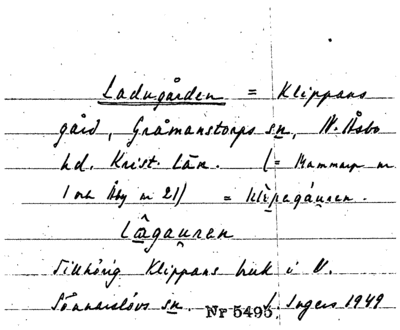 Ladugården = Klippans
gård, Gråmanstorps sn, N. Åsbo
hd. Krist. län. (= Mammarp nr
1 och Åby nr 21) = klipegáuren.
lâgauren
Tillhörig Klippans bruk i V.
Sönnarslövs sn. / Ingers 1949
Nr 5495